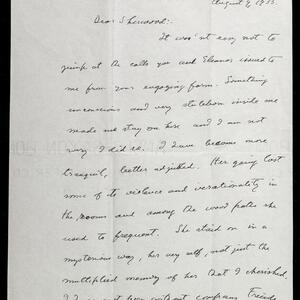 August 9, 1933.
Dear Sherwood:
It wasn't easy not to
jump at the calls you and Eleanor issued to
me from your engaging farm. Something
unconscious and very stubborn inside me
made me stay on here and I am not
sorry I did so. I have become more
tranquil, better adjusted. Her going lost
some of its violence and
the rooms and among the wood paths she
used to frequent. She stayed on in a
mysterious way, her very self, not just the
multiplied memory of her that I cherished.
not without Friends